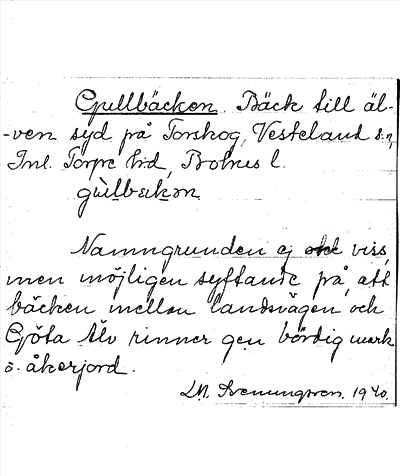 Gullbäcken. Bäck till äl-
-ven syd på Torskog, Vesteland s:n,
Inl. Torpe h:d, Bohus l.
gùlbækən

Namngrunden ej viss,
men möjligen syftande på, att
bäcken mellan landsvägen och
Göta Älv rinner gen. bördig mark
o. åkerjord.
1940.